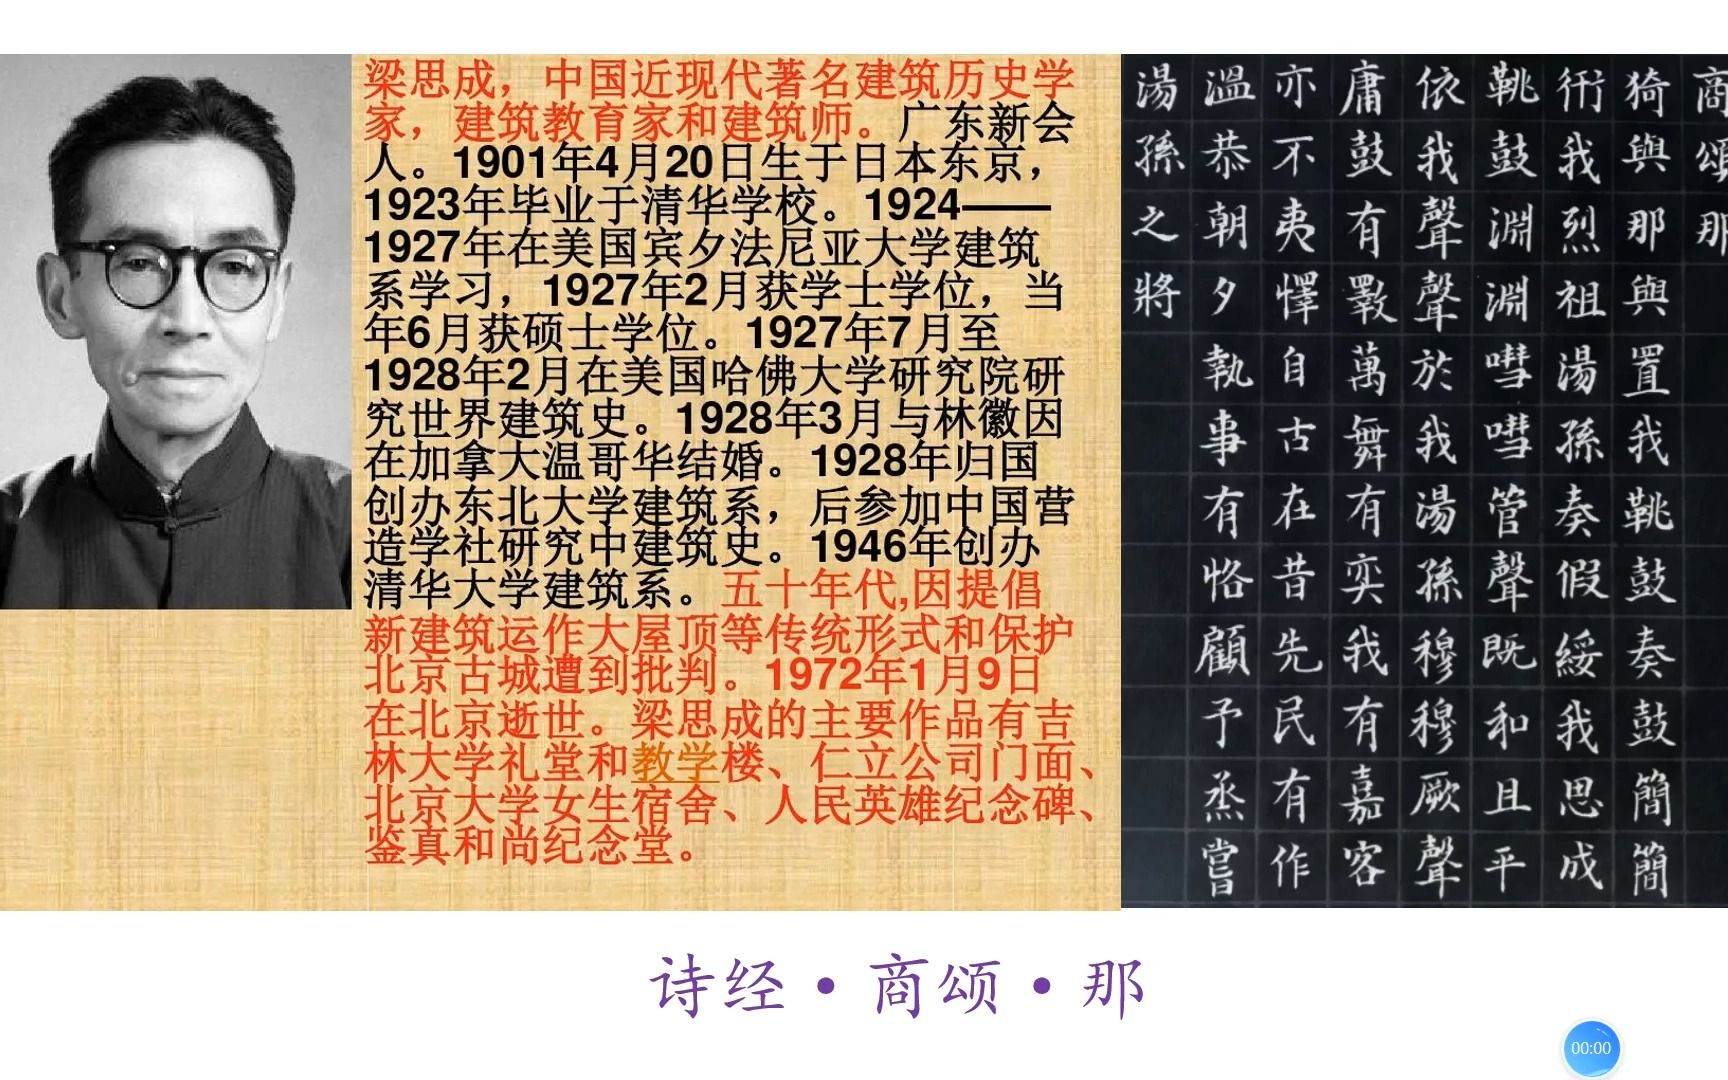 梁思成，中国近现代著名建筑历史学
家，建筑教育家和建筑师。广东新会
人。1901年4月20日生于日本东京，
1923年毕业于清华学校。1924——
1927年在美国宾夕法尼亚大学建筑
系学习，1927年2月获学士学位，当
年6月获硕士学位。1927年7月至
1928年2月在美国哈佛大学研究院研
究世界建筑史。1928年3月与林徽因
在加拿大温哥华结婚。1928年归国
创办东北大学建筑系，后参加中国营
造学社研究中建筑史。1946年创办
清华大学建筑系。五十年代,因提倡
新建筑运作大屋顶等传统形式和保护
北京古城遭到批判。1972年1月9日
在北京逝世。梁思成的主要作品有吉
林大学礼堂和教学楼、仁立公司门面、
北京大学女生宿舍、人民英雄纪念碑、
鉴真和尚纪念堂。
商頌那
猗與那與置我鞉鼓奏鼓簡簡
衎我烈祖湯孫奏假綏我思成
鞉鼓淵淵嘒嘒管聲既和且平
依我聲聲於我湯孫穆穆厥聲
庸鼓有斁萬舞有奕我有嘉客
亦不夷懌自古在昔先民有作
溫恭朝夕執事有恪顧予烝嘗
湯孫之將
诗经·商颂·那
00:00